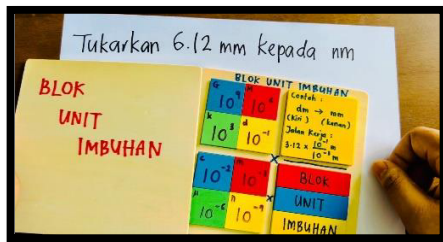 Tukarkan 6.12 mm kepada nm
BLOK
UNIT
IMBUHAN
BLOK UNIT IMBUHAN
G
10⁹
M
10⁶
k
10³
d
10⁻¹
c
10⁻²
m
10⁻³
μ
10⁻⁶
n
10⁻⁹
Contoh :
dm → mm
(kiri) (kanan)
Jalan Kerja :
3.12 × 10⁻¹ m
10⁻³ m
×
BLOK
×
UNIT
IMBUHAN